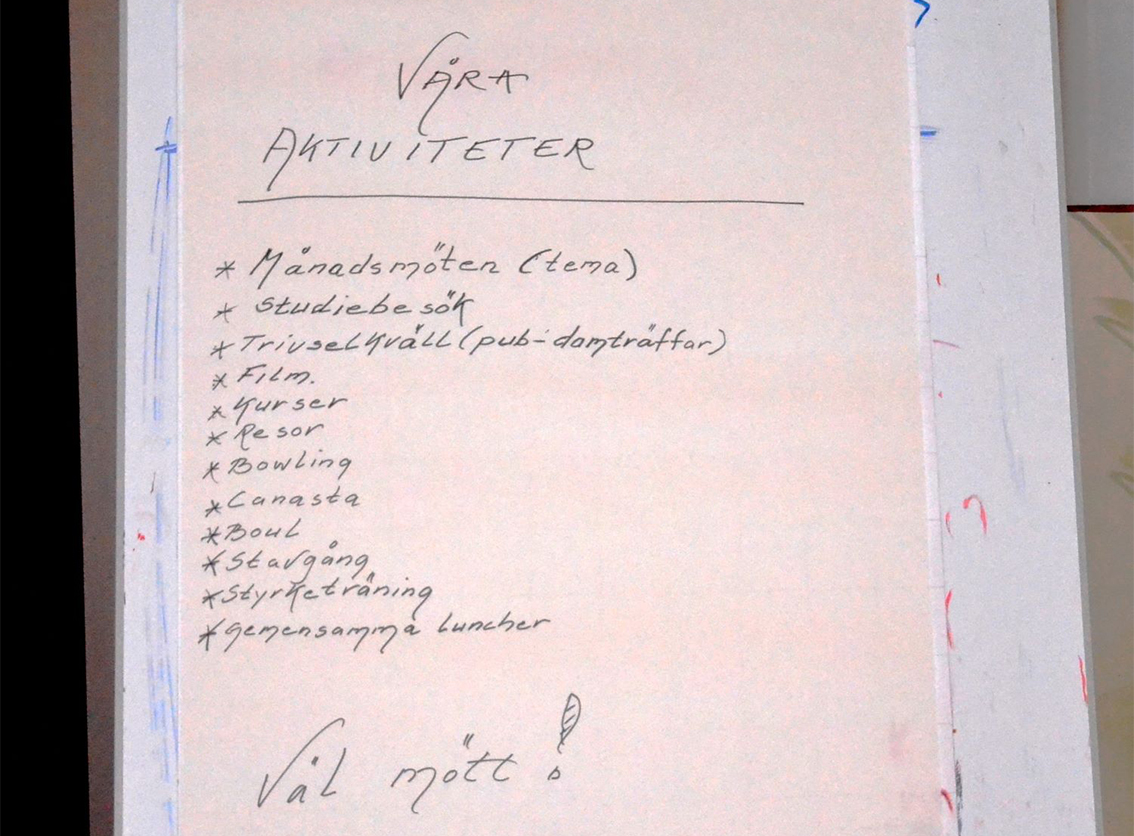 VÅRA
AKTIVITETER
* Månadsmöten (tema)
* Studiebesök
* Trivselkväll (pub-damträffar)
* Film.
* Kurser
* Resor
* Bowling
* Canasta
* Boul
* Stavgång
* Styrketräning
* Gemensamma luncher
Väl mött!